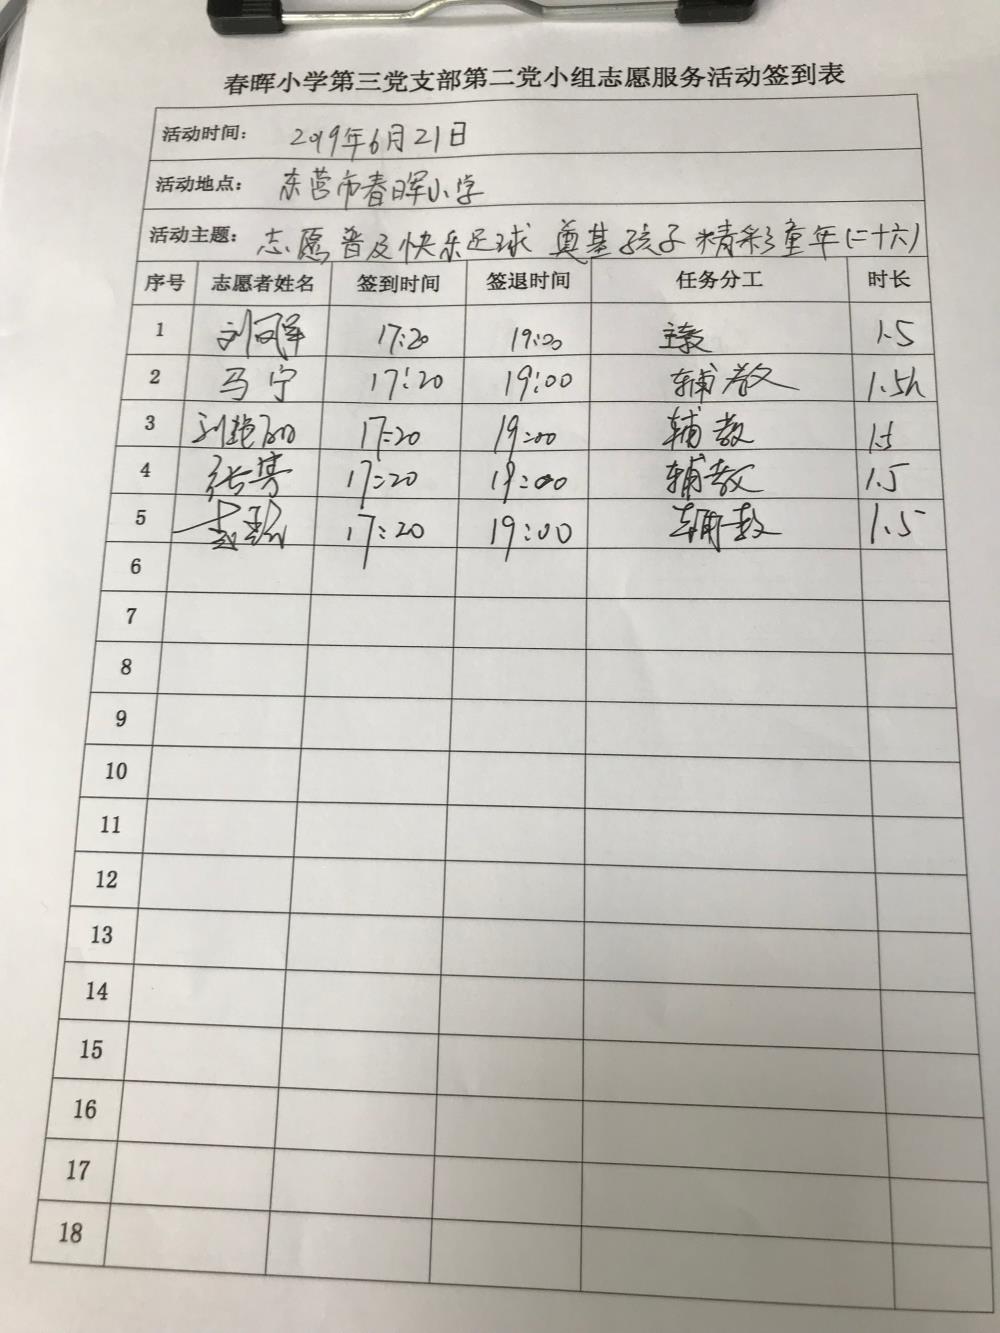 春晖小学第三党支部第二党小组志愿服务活动签到表
活动时间： 2019年6月21日
活动地点： 东营市春晖小学
活动主题： 志愿普及快乐足球 奠基孩子精彩童年(二十六)
序号 志愿者姓名 签到时间 签退时间 任务分工 时长
1 17:20 19:00 主教 1.5
2 马宁 17:20 19:00 辅教 1.5h
3 刘艳丽 17:20 19:00 辅教 1.5
4 17:20 19:00 辅教 1.5
5 17:20 19:00 辅教 1.5
6
7
8
9
10
11
12
13
14
15
16
17
18